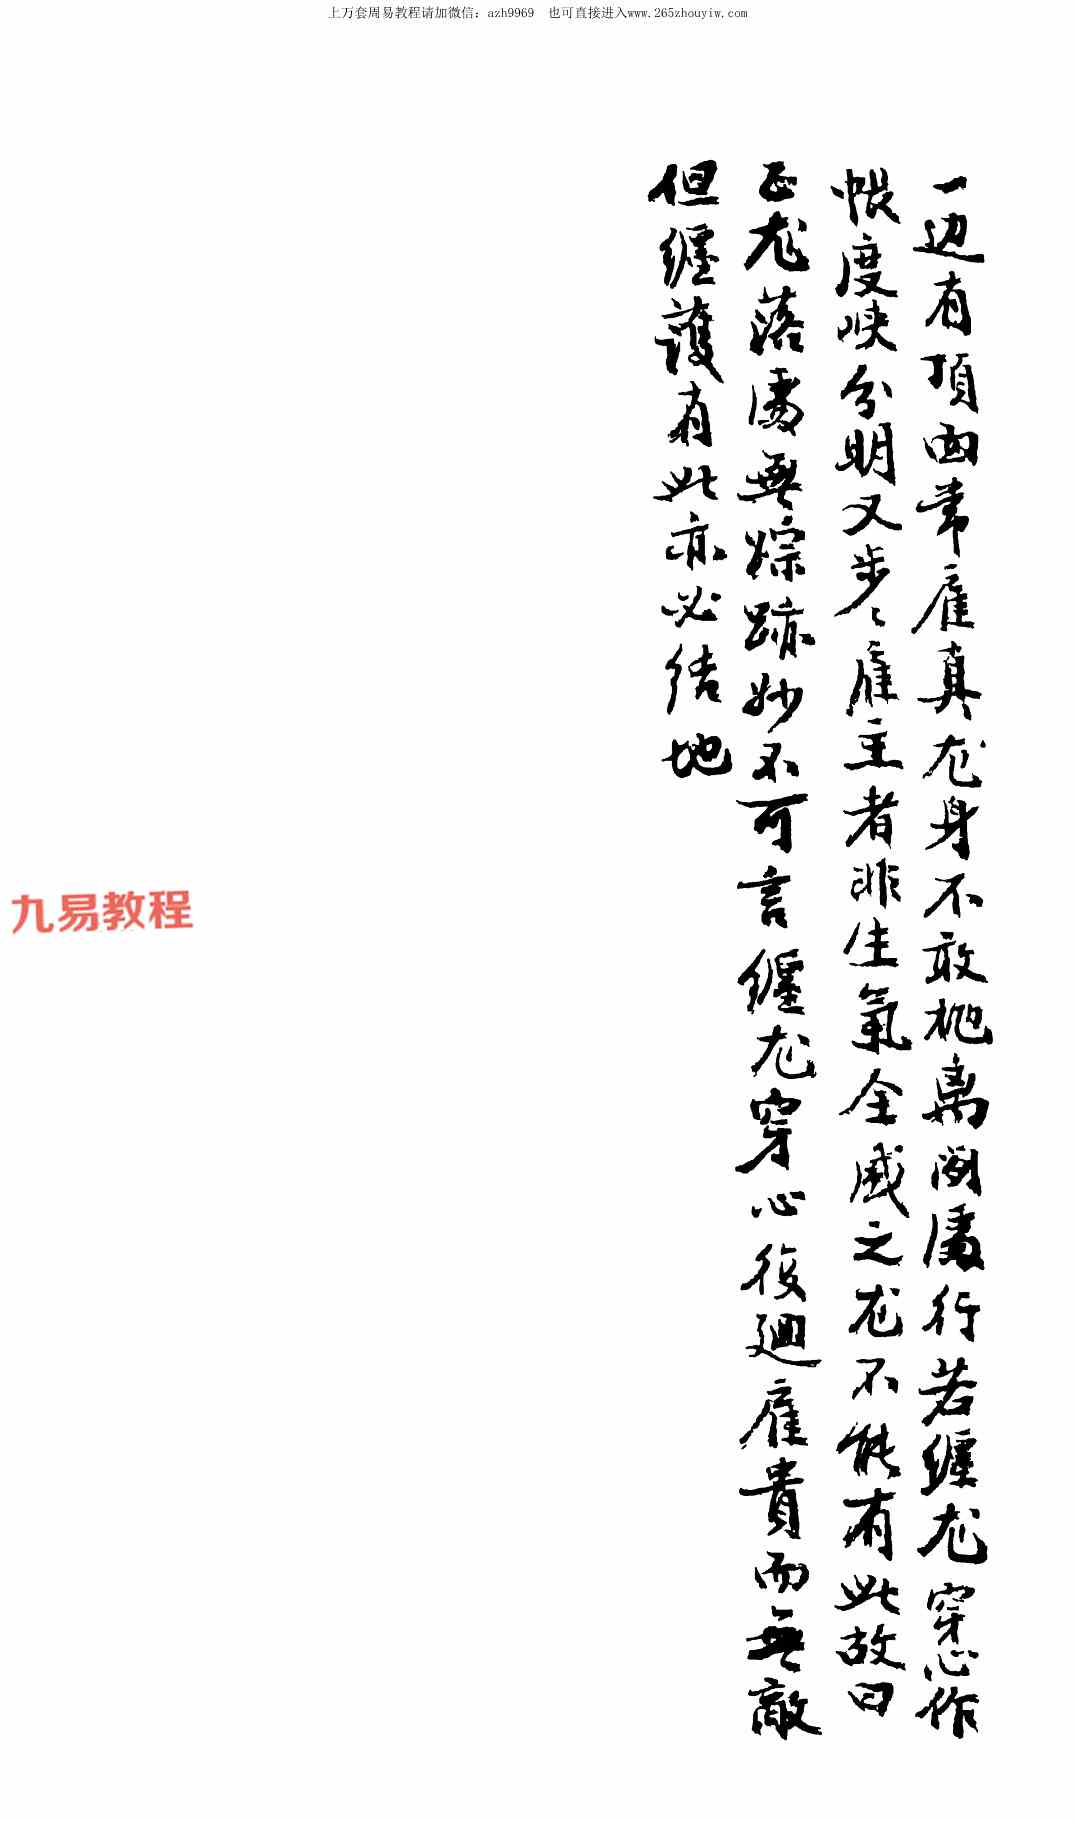 上万套周易教程请加微信：azh9969 也可直接进入www.265zhouyiw.com
一边有頂面常雇真龙身不敢抛离闲處行若纏龙穿心作
帳度峡分明又步々雇主者非生氣全威之龙不能有此故曰
正龙落處無踪跡妙不可言纏龙穿心復廻雇貴而無敵
但纏護有此亦必结地
九易教程